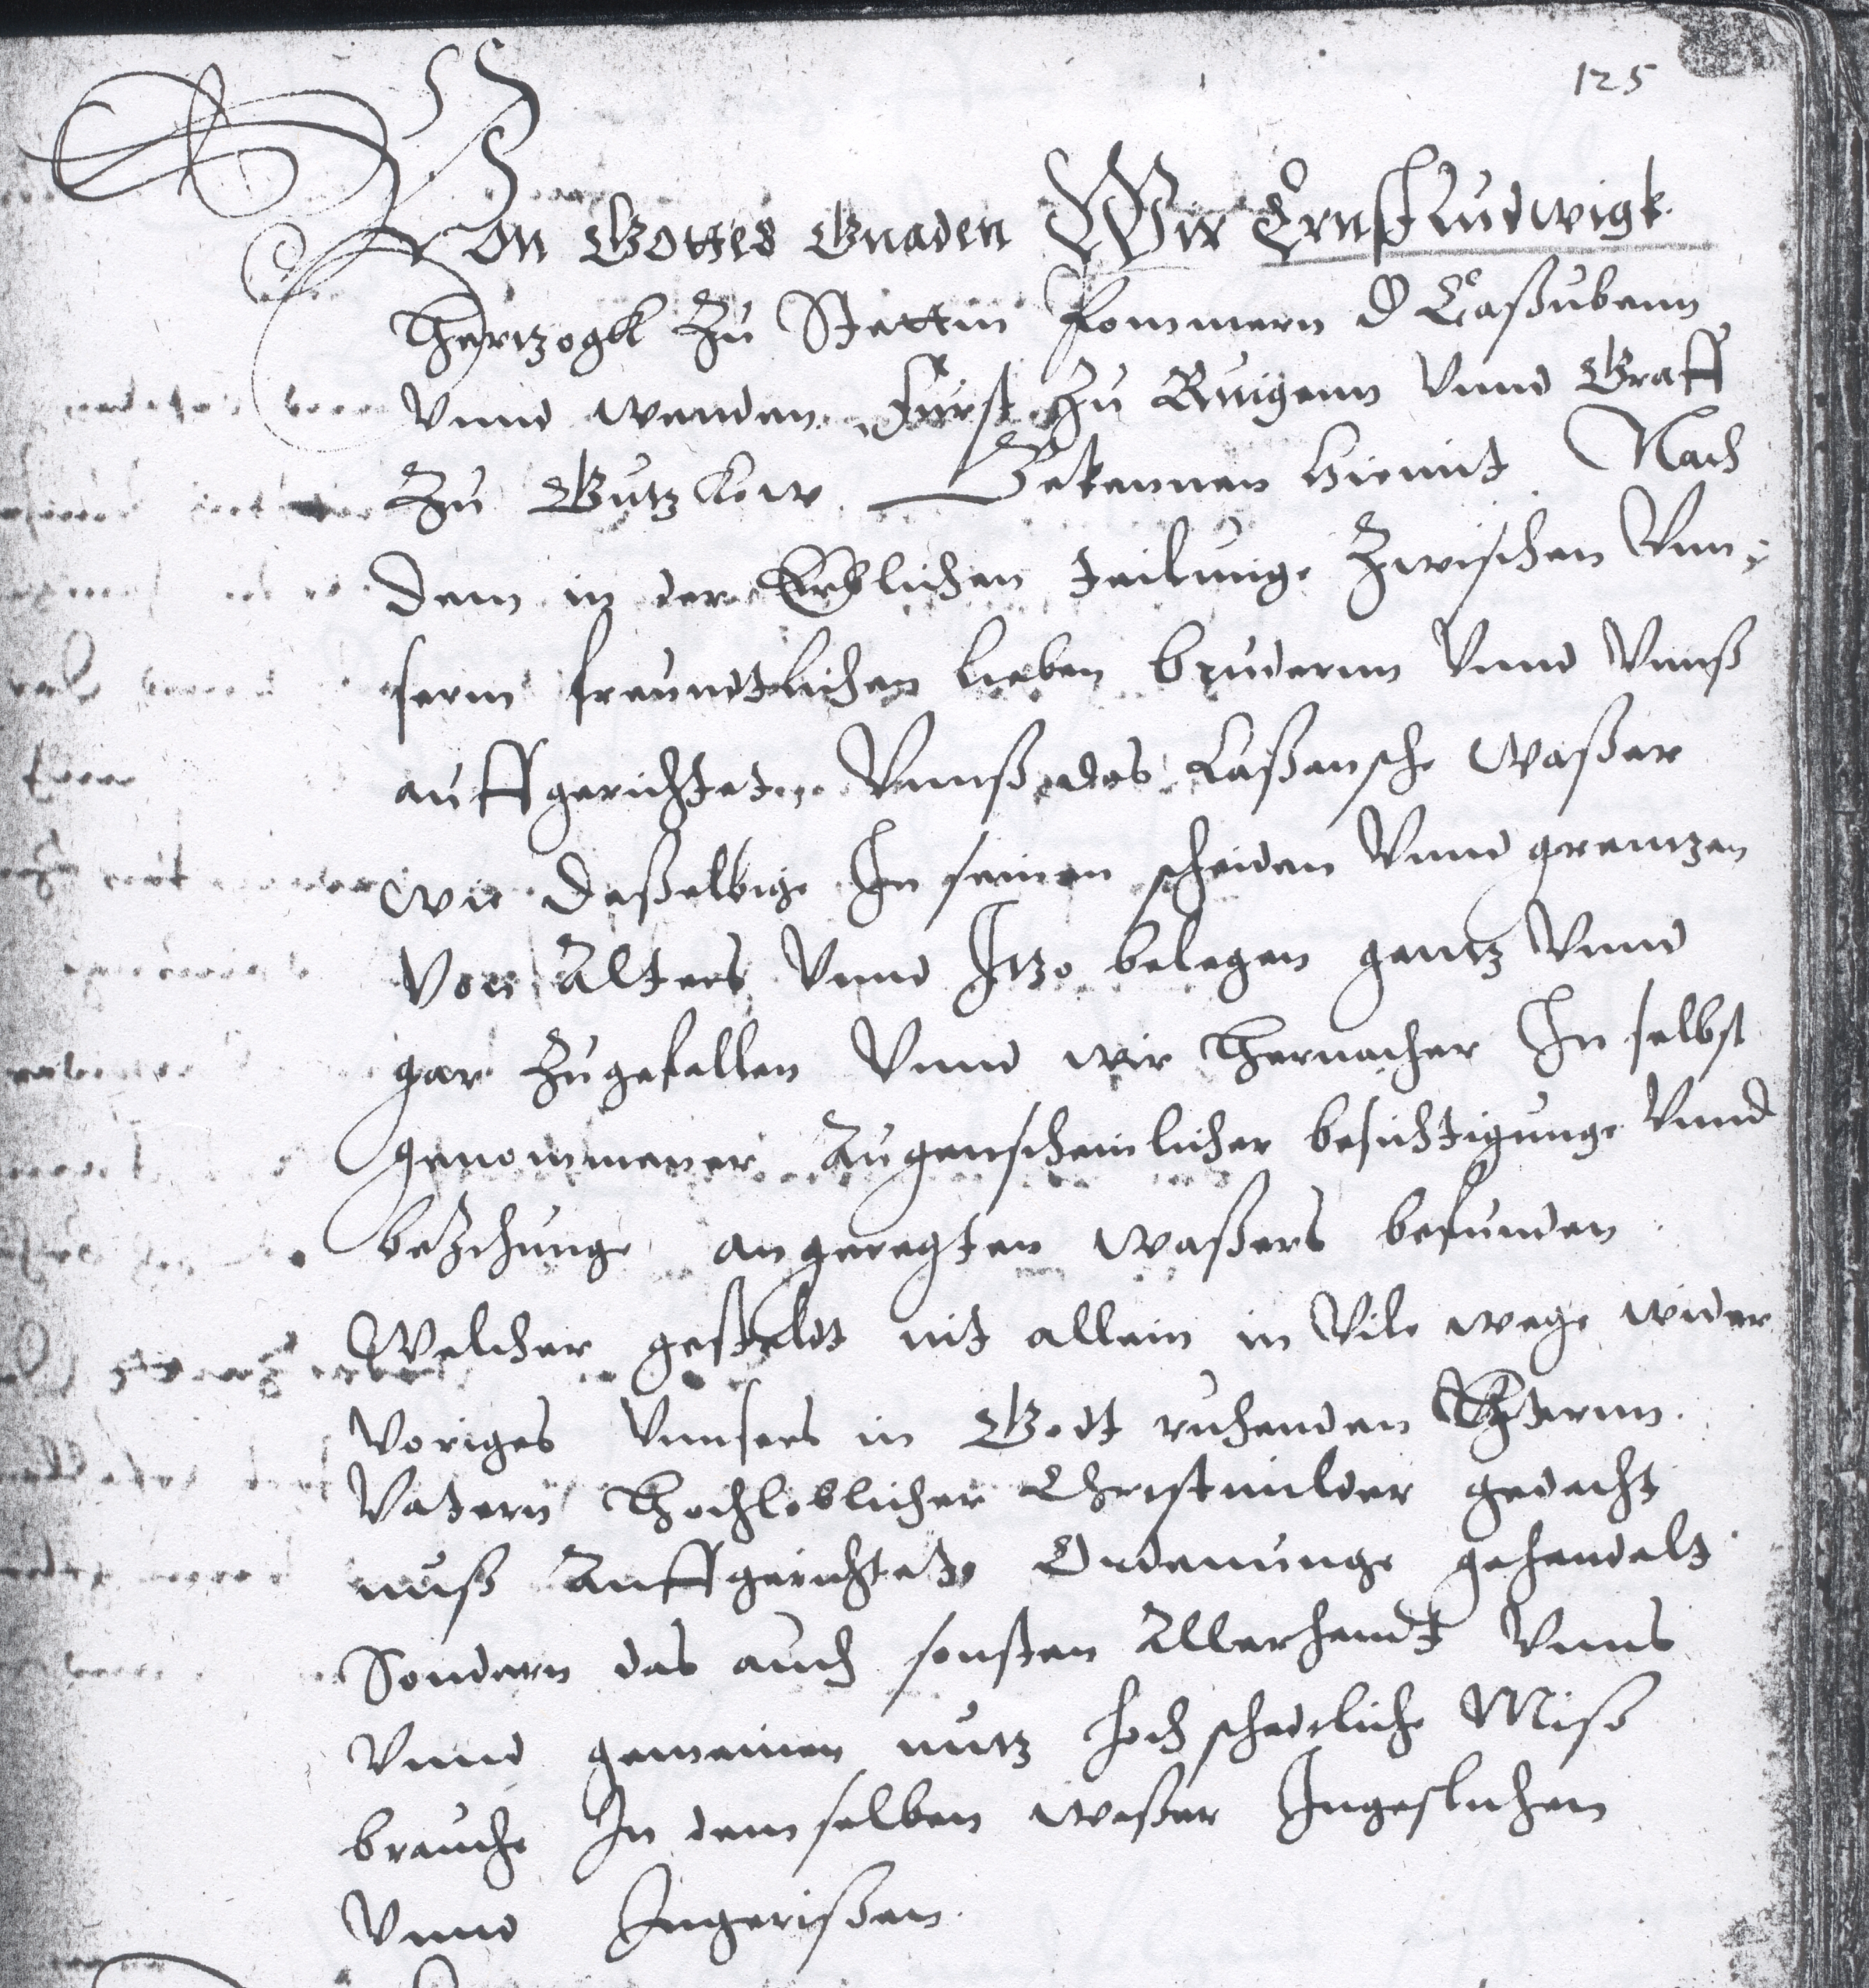 125
Von Gottes Gnaden Wir Ernst Ludwigk
Hertzogk Zu Stettin Pommern d Caßubenn
Vnnd wenden Furst Zu Ruigenn Vnnd Graff
Zu Gutzkow Bekennen hiemit Nach
dem in der Erblichen teilunge Zwischen Vnn-
serm freundtlichen lieben brudernn Vnnd Vnnß
auffgerichtet, Vnnß das Laßansche waßer
wie daßelbige In seinen scheiden Vnnd grentzen
Von Alters Vnnd Itzo belegen gantz Vnnd
gar Zugefallen Vnnd wir Hernacher In selbst
genommener Augenscheinlicher besichtigunge Vnnd
beZihunge angeregten waßers befunden
Welcher gestaldt nit allein in Vile wege wider
Voriges Vnnsers in Godt ruhenden Hernn
Vatern Hochloblicher Christmilder gedecht
nuß Auffgerichtete Ordenunge gehandelt
Sondern das auch sonsten Allerhandt Vnns
Vnnd gemeinen nutz hoch schedliche Miß
brauche In demselben waßer Ingeslichen
Vnnd Ingerißen